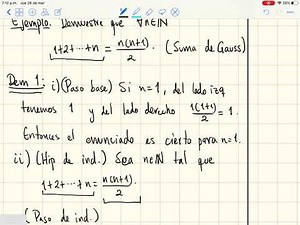 7:12 p.m. jue 26 de mar
Ejemplo. Demuestre que ∀n∈ℕ
1+2+···+n = n(n+1)/2. (Suma de Gauss)
Dem 1: i) (Paso base) Si n=1, del lado izq
tenemos 1 y del lado derecho 1(1+1)/2 = 1.
Entonces el enunciado es cierto para n=1.
ii) (Hip de ind.) Sea n∈ℕ tal que
1+2+···+n = n(n+1)/2.
(Paso de ind.)